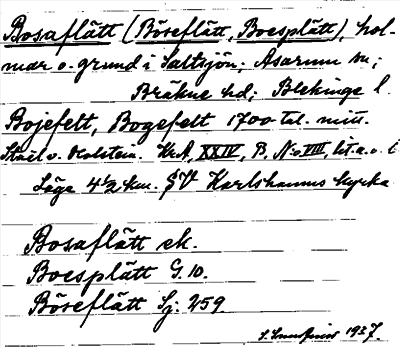 Bosaflätt (Böreflätt, Boesplätt), hol-
mar o. grund i Saltsjön; Asarum sn;
Bräkne hd; Blekinge l.
Bojefelt, Bogefelt 1700-tal. mitt.
Stael v. Holstein. KrA, XXIV, B, N:o VIII, lit. a. o. c
Läge 4 1/2 km. SV Karlshamns kyrka
Bosaflätt ek.
Boesplätt G. 10.
Böreflätt Sj. 259
1937.